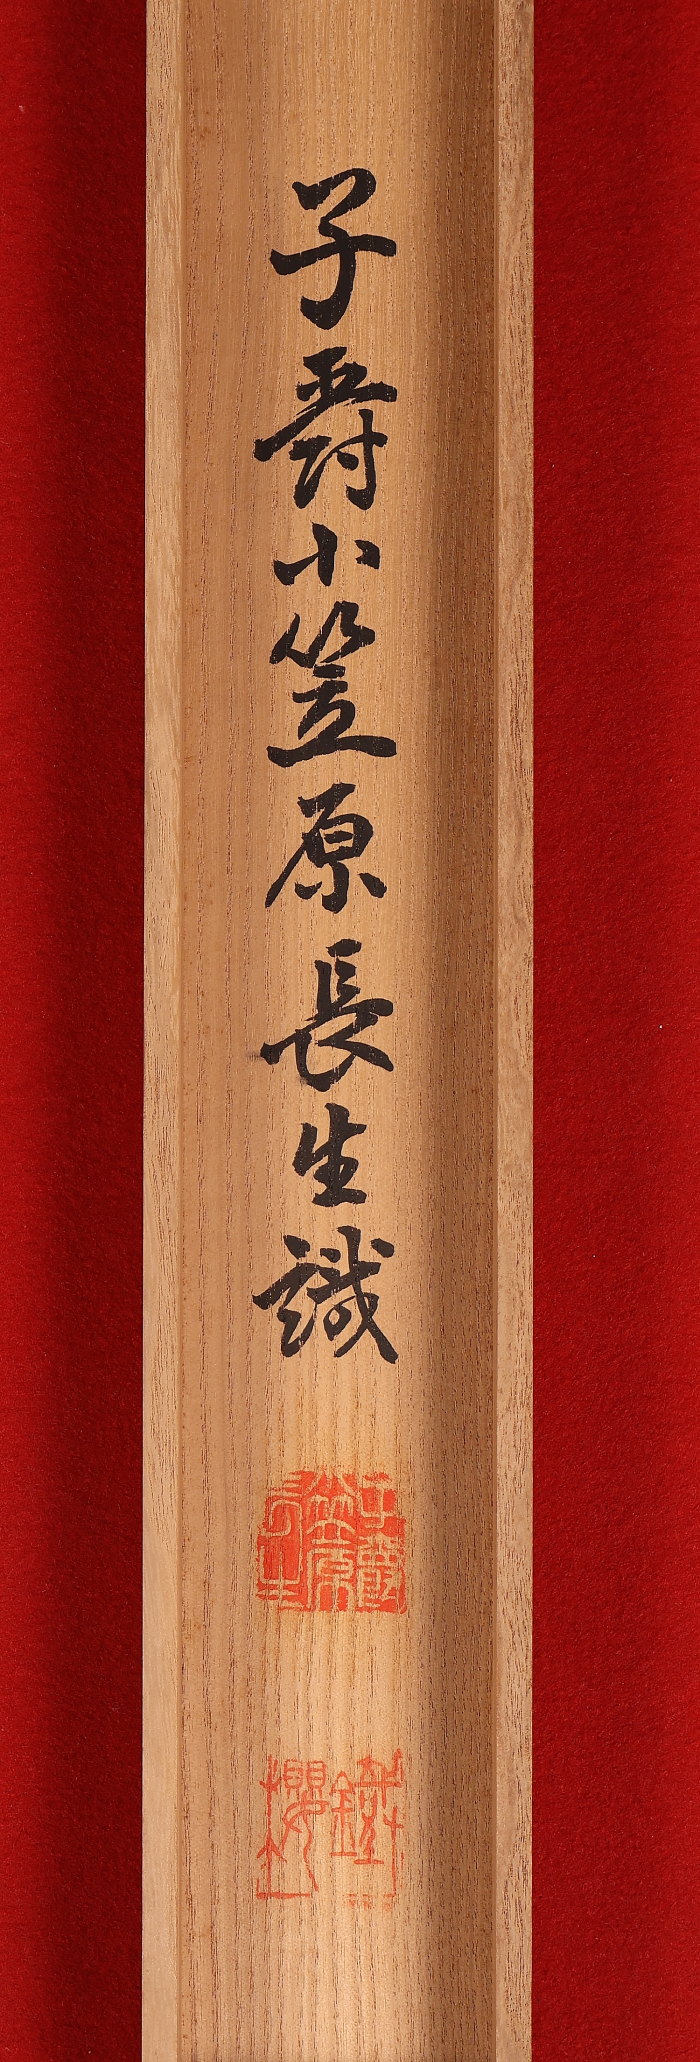 子爵小笠原長生識